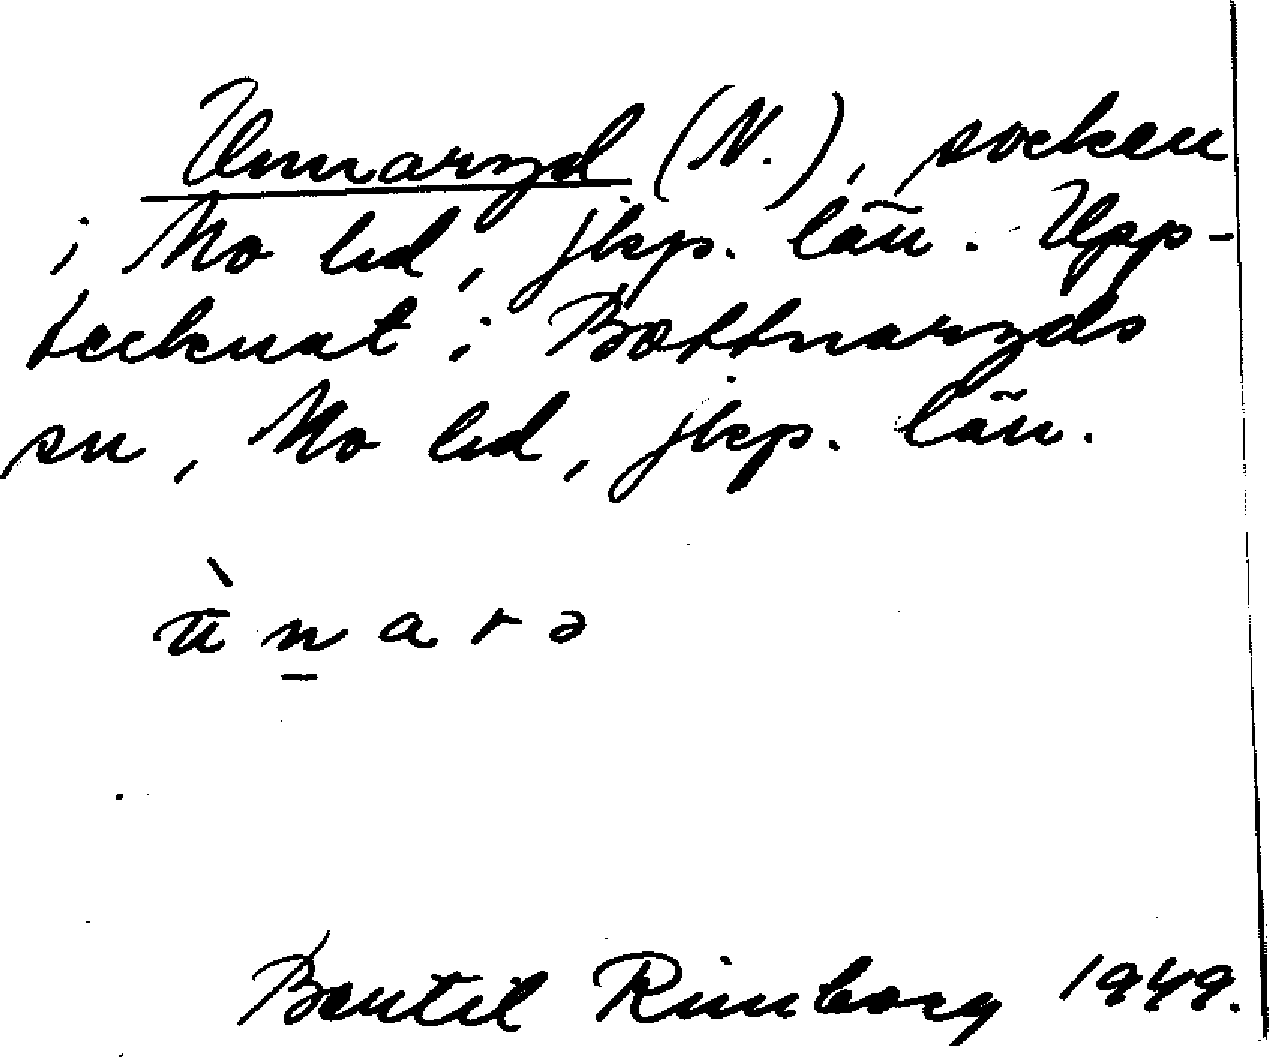 Unnaryd (N.), socken
i Mo hd, jkp. län. Upp-
tecknat i Bottnaryds
sn, Mo hd, jkp. län.
ū̀ n̲ a r ə
Bertil Rimborg 1949.